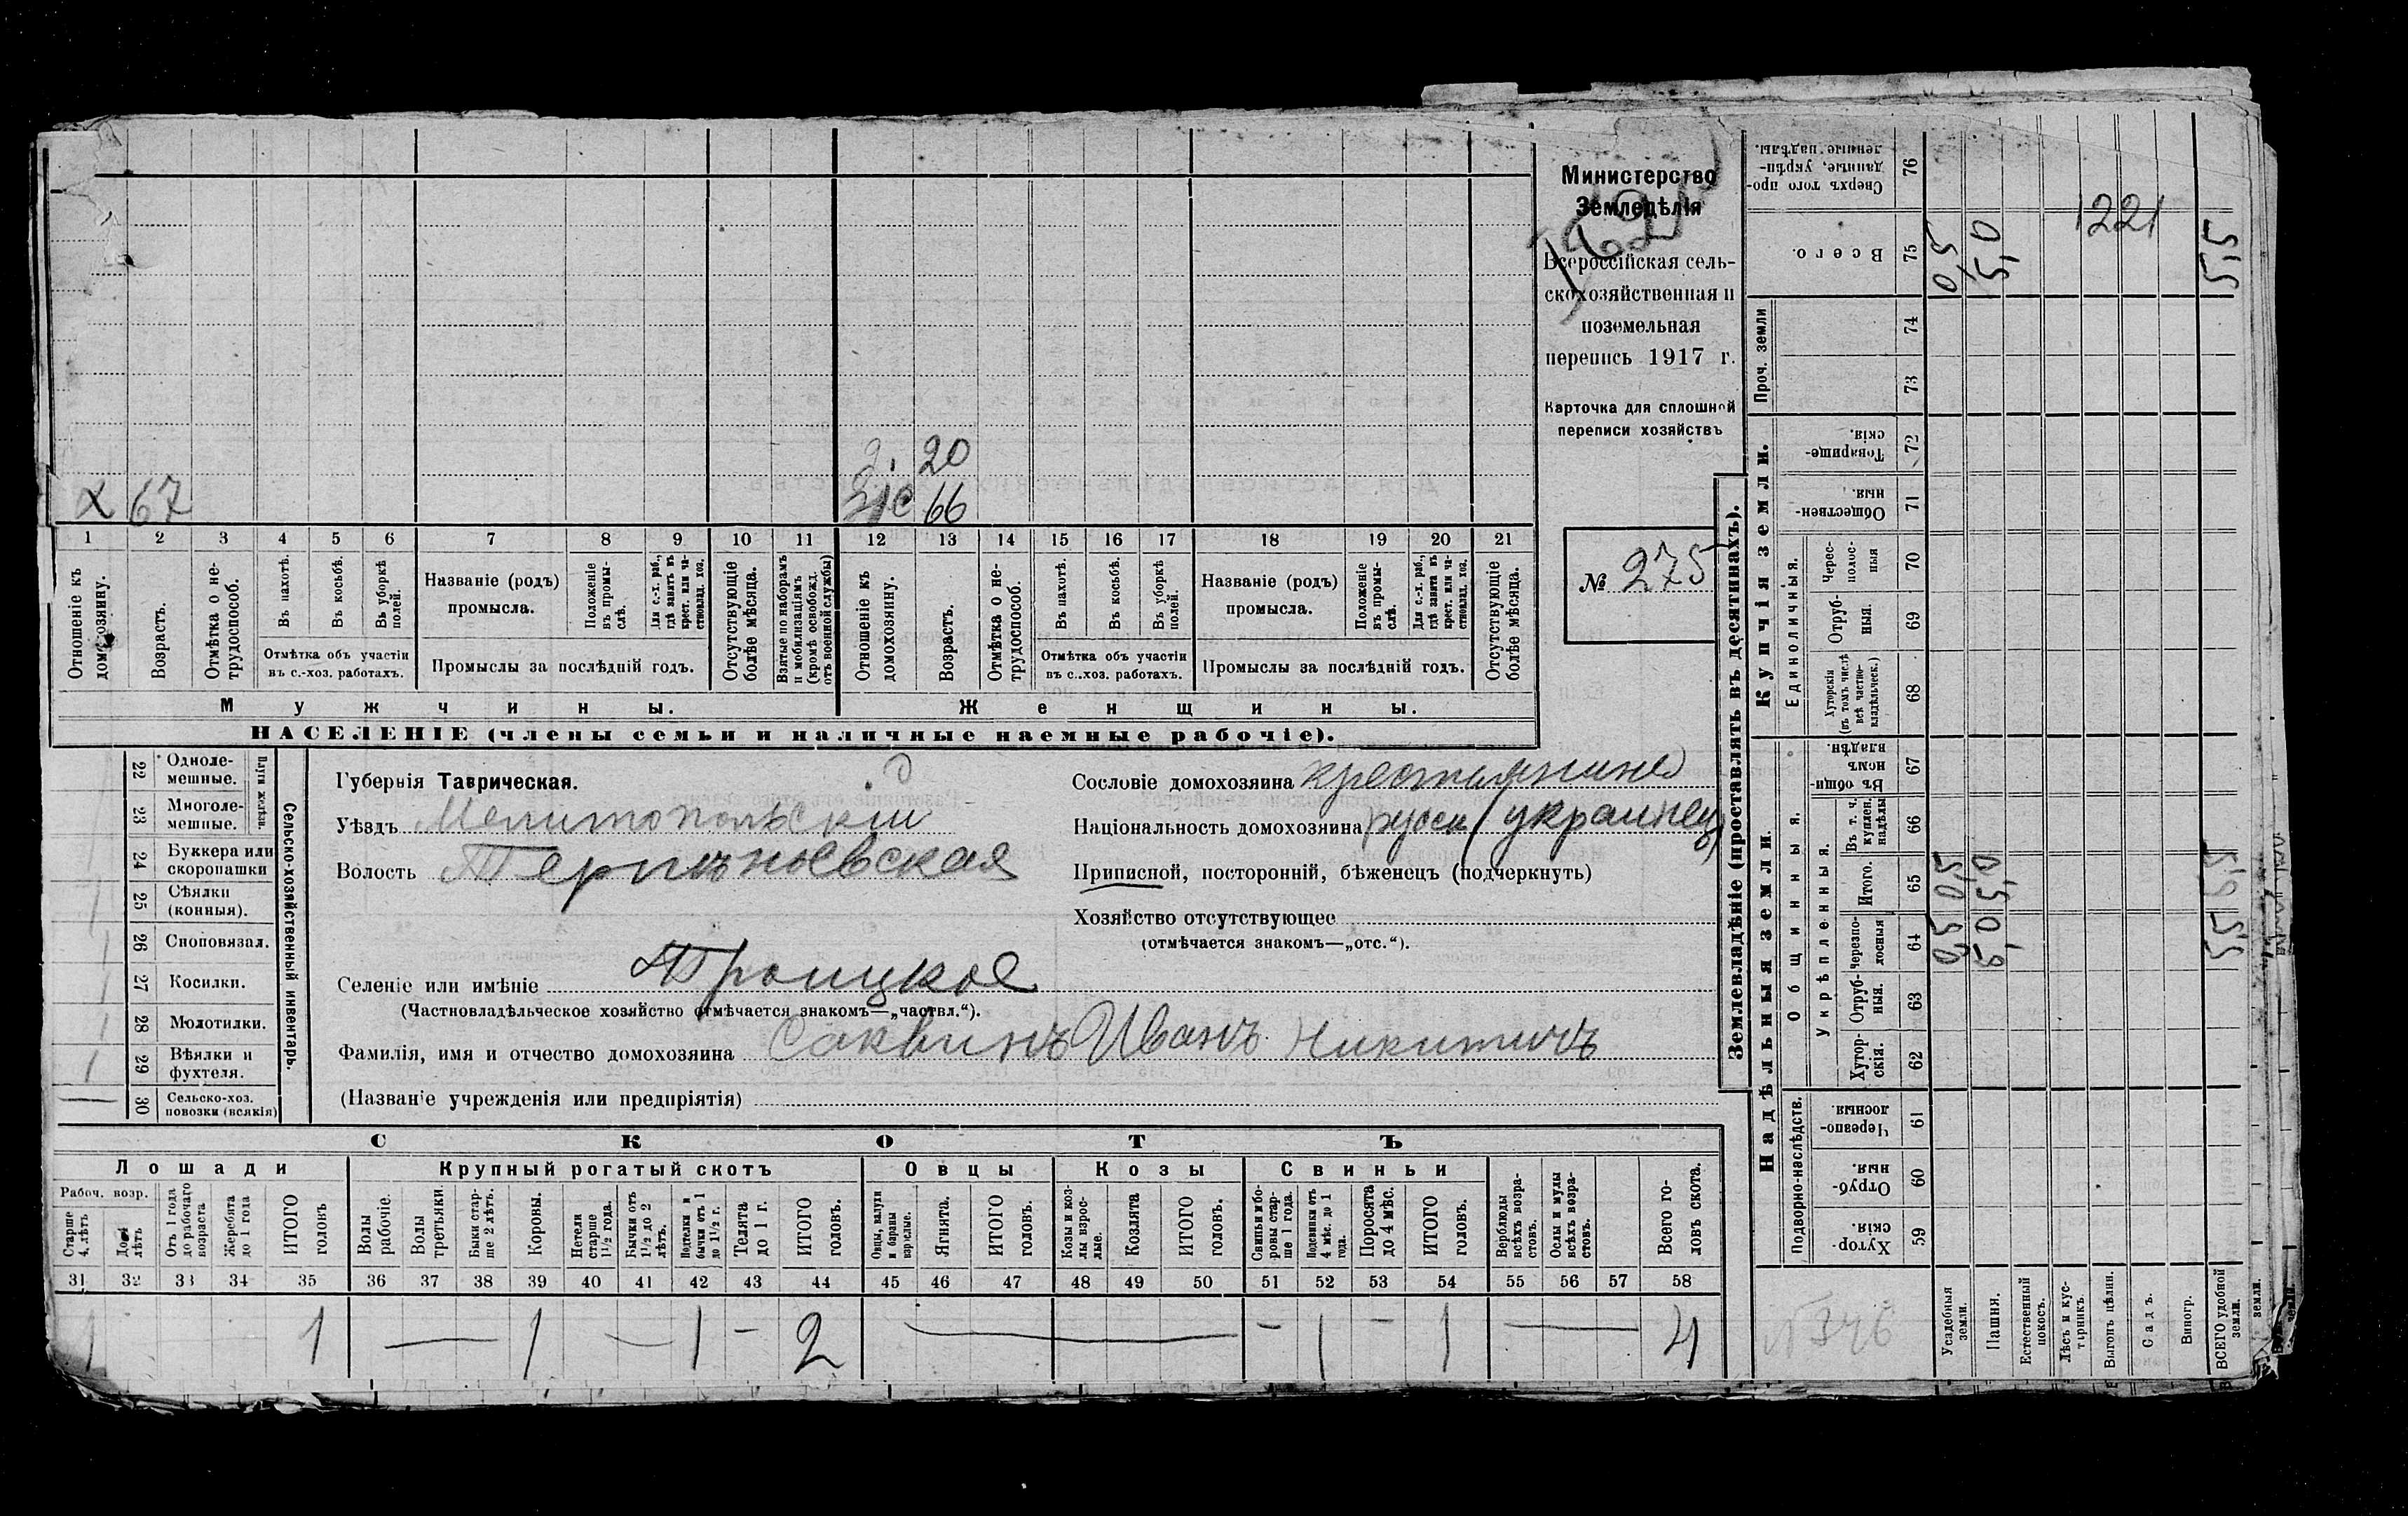 Министерство
Земледѣлія
Всероссійская сель-
скохозяйственная и
поземельная
перепись 1917 г.
Карточка для сплошной
переписи хозяйствъ
№ 275
х 67
д. 20
66
1 2 3 4 5 6 7 8 9 10 11 12 13 14 15 16 17 18 19 20 21
Отношеніе къ домохозяину.
Возрастъ.
Отмѣтка о не-трудоспособ.
Въ пахотѣ.
Въ косьбѣ.
Въ уборкѣ полей.
Отмѣтка объ участіи
въ с.-хоз. работахъ.
Названіе (родъ)
промысла.
Положеніе въ промы-слѣ.
Для с.-х. раб., гдѣ занятъ въ крест. или ча-стновлад. хоз.
Промыслы за послѣдній годъ.
Отсутствующіе болѣе мѣсяца.
Взятые по наборамъ и мобилизаціямъ (кромѣ освобожд. отъ военной службы)
Отношеніе къ домохозяину.
Возрастъ.
Отмѣтка о не-трудоспособ.
Въ пахотѣ.
Въ косьбѣ.
Въ уборкѣ полей.
Отмѣтка объ участіи
въ с.-хоз. работахъ.
Названіе (родъ)
промысла.
Положеніе въ промы-слѣ.
Для с.-х. раб., гдѣ занята въ крест. или ча-стновлад. хоз.
Промыслы за послѣдній годъ.
Отсутствующіе болѣе мѣсяца.
Мужчины.
Женщины.
НАСЕЛЕНІЕ (члены семьи и наличные наемные рабочіе).
Сельско-хозяйственный инвентарь.
Плуги желѣз.
22 Одноле-мешные.
23 Многоле-мешные.
24 Буккера или скоропашки
25 Сѣялки (конныя).
26 Сноповязал.
27 Косилки.
28 Молотилки.
1 29 Вѣялки и фухтеля.
— 30 Сельско-хоз. повозки (всякія)
Губернія Таврическая.
Уѣздъ Мелитопольскій
Волость Терпѣньевская
Селеніе или имѣніе Троицкое
(Частновладѣльческое хозяйство отмѣчается знакомъ—„частвл.“).
Фамилія, имя и отчество домохозяина Саквинъ Иванъ Никитичъ
(Названіе учрежденія или предпріятія)
Сословіе домохозяина крестьянинъ
Національность домохозяина русск (украинец)
Приписной, посторонній, бѣженецъ (подчеркнуть)
Хозяйство отсутствующее
(отмѣчается знакомъ—„отс.“).
СКОТЪ
Лошади
Крупный рогатый скотъ
Овцы
Козы
Свиньи
Рабоч. возр.
Старше 4 лѣтъ
До 4 лѣтъ
Отъ 1 года до рабочаго возраста
Жеребята до 1 года
ИТОГО головъ
Волы рабочіе.
Волы третьяки.
Быки стар-ше 2 лѣтъ.
Коровы.
Нетели старше 1½ года.
Бычки отъ 1½ до 2 лѣтъ.
Подтелки и бычки отъ 1 до 1½ г.
Телята до 1 г.
ИТОГО головъ.
Овцы, валухи и бараны взрослые.
Ягнята.
ИТОГО головъ.
Козы и коз-лы взрос-лые.
Козлята
ИТОГО головъ.
Свиньи и бо-ровы стар-ше 1 года.
Подсвинки отъ 4 мѣс. до 1 года.
Поросята до 4 мѣс.
ИТОГО головъ.
Верблюды всѣхъ возра-стовъ.
Ослы и мулы всѣхъ возра-стовъ.
Всего го-ловъ скота.
31 32 33 34 35 36 37 38 39 40 41 42 43 44 45 46 47 48 49 50 51 52 53 54 55 56 57 58
1 1 — 1 — 1 — 2 — — 1 — 1 — 4
Землевладѣніе (проставлять въ десятинахъ).
Надѣльныя земли.
Купчія земли.
Проч. земли
Подворно-наслѣдств.
Общинныя.
Укрѣпленныя.
Единоличныя.
59 Хутор-скія.
60 Отруб-ныя.
61 Черезпо-лосныя.
62 Хутор-скія.
63 Отруб-ныя.
64 Черезпо-лосныя
65 Итого.
66 Въ т. ч. куплен. надѣлы
67 Въ общин-номъ владѣн.
68 Хуторскія (въ томъ числѣ всѣ частно-владѣльческ.)
69 Отруб-ныя.
70 Черес-полос-ныя
71 Обществен-ныя.
72 Товарище-скія.
73
74
75 Всего.
76 Сверхъ того про-данные, укрѣп-ленные надѣлы.
Усадебныя земли.
0,5 0,5 0,5
Пашня.
5,0 5,0 5,0
Естественный покосъ.
Лѣсъ и кус-тарникъ.
Выгонъ цѣлин.
Садъ.
Виногр.
ВСЕГО удобной земли.
5,5 5,5 5,5
1221
№ 346